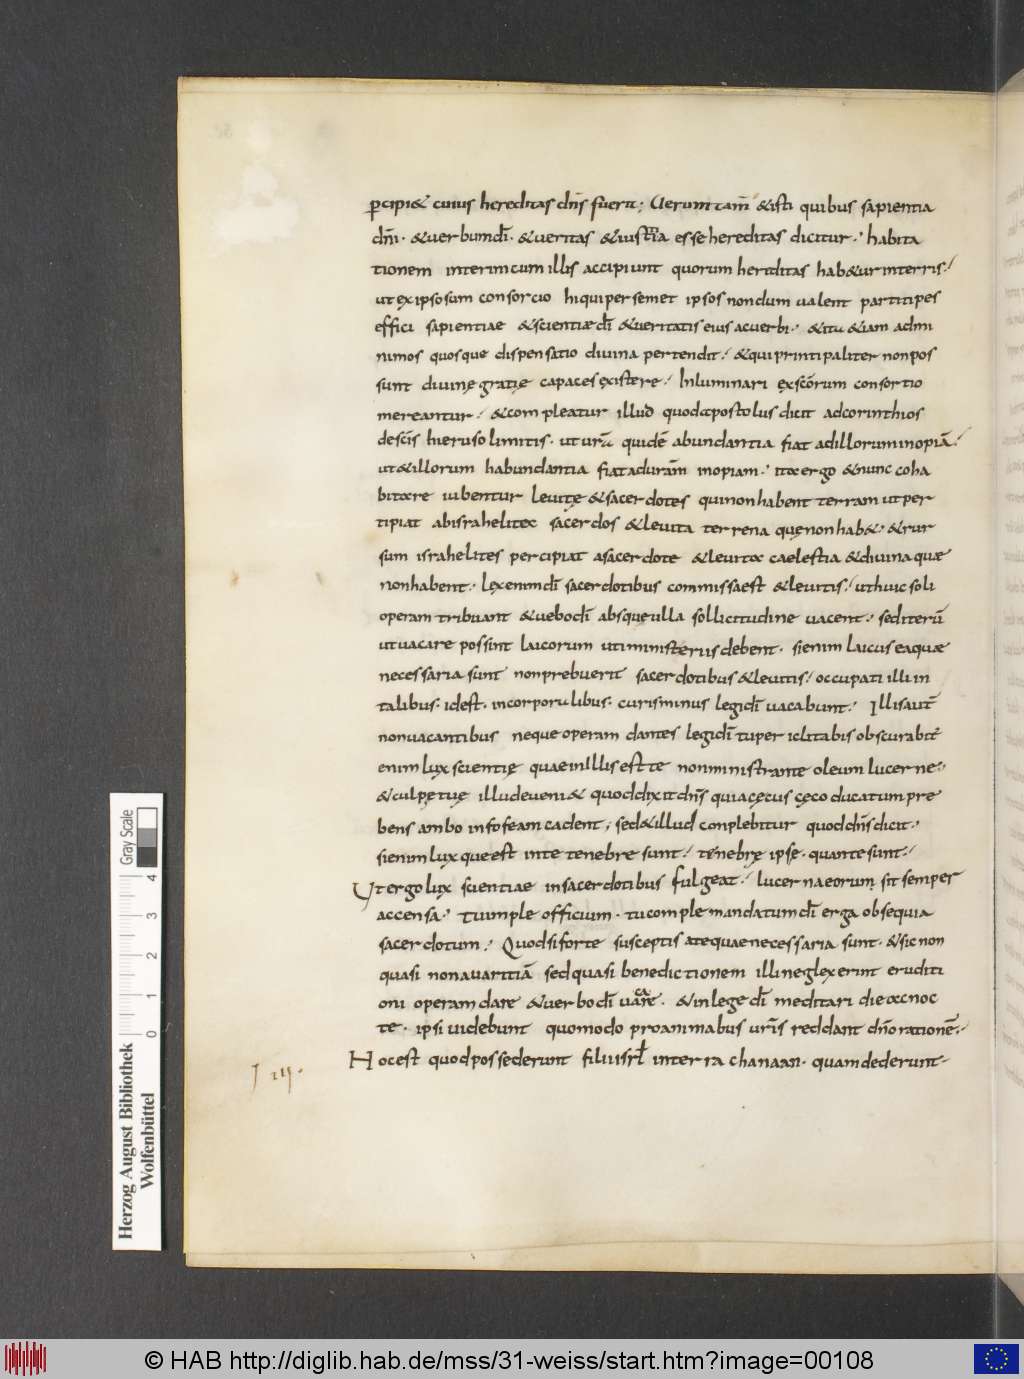 ꝑcipi& cuius hereditas dn̄s fuerit; Uerum tam̄ &isti quibus sapientia
dn̄i· &uerbumdī· &ueritas &iustitia esse hereditas dicitur· habita
tionem interim cum illis accipiunt quorum heriditas hab&ur interris·
ut ex ipso sum consorcio hi qui per semet ipsos nondum ualent partitipes
effici sapientiae &scientiædī &ueritatis eius acuerbi· &itu &iam admi
nimos quosque dispensatio diuina pertendit· &qui printipaliter non pos
sunt diuinę gratię capaces existere· Inluminari exscōrum consortio
mereantur· &compleatur illud quod apostolus dicit adcorinthios
descīs hierusolimitis· ut urā quidē abundantia fiat adillorum inopiā·
ut&illorum habundantia fiat aduram̄ inopiam· ita ergo &nunc coha
bitare iubentur leuitę &sacerdotes qui non habent terram ut per
tipiat abisrahelitec sacerdos &leuita terrena quę non hab&· &rur
sum israhelites percipiat asacerdote &leuita caelestia &diuina quæ
non habent· lex enim dī sacerdotibus commissa est &leuitis· ut huic soli
operam tribuant &uebo dī absque ulla sollicitudine uacent· sed iterū
ut uacare possint laicorum uti ministeriis debent· si enim laicus ea quæ
necessaria sunt non prebuerit sacerdotibus &leuitis· occupati illi in
talibus· idest· in corporulibus· curis minus legi dī uacabunt· Illis aut̄
non uacantibus neque operam dantes legi dī tu periclitabis obscurabit̄
enim lux scientię quae in Illis est te non ministrante oleum lucerne·
&culpę tuę illud eueni& quod dixit dn̄s quia cęcus cęco ducatum pre
bens ambo in fofeam cadent; sed&illud conplebitur quod dn̄s dicit·
si enim lux que est in te tenebre sunt· tenebrę ipsę· quante sunt·
Ut ergo lux scientiae in sacerdotibus fulgeat· lucerna eorum sit semper
accensa· Tu imple officium· tu comple mandatum dī erga obsequia
sacerdotum; Quod si forte susceptis a te quae necessaria sunt· &sic non
quasi non auaritiā sed quasi benedictionem illi neglexerint eruditi
oni operam dare &uerbo dī uacare· &in lege dī meditari die ac noc
te· ipsi uidebunt quomodo pro animabus urīs reddant dn̄o rationē·
Hoc est quod possederunt filii isrl̄ in terra chanaan· quam dederunt
Herzog August Bibliothek
Wolfenbüttel
0 1 2 3 4 Gray Scale
© HAB http://diglib.hab.de/mss/31-weiss/start.htm?image=00108